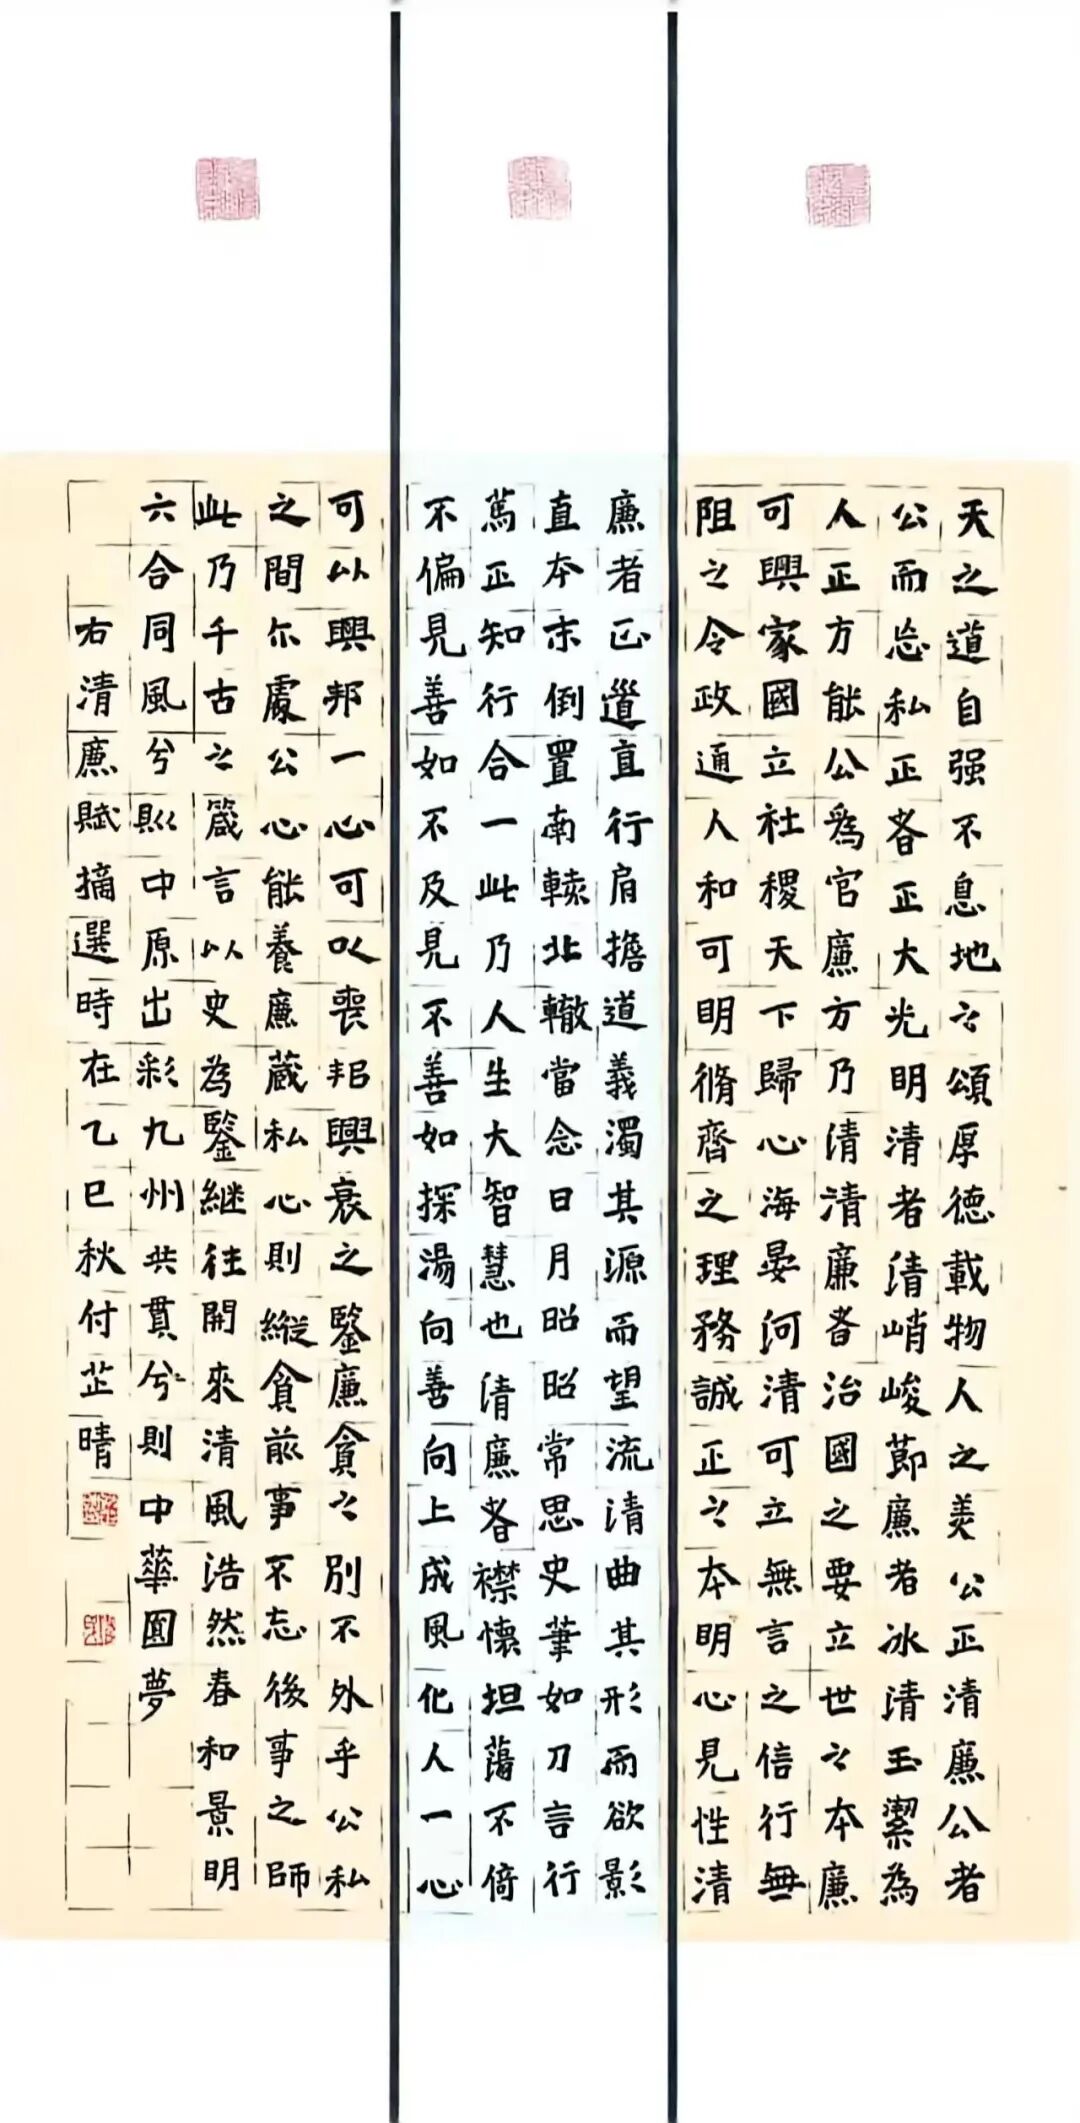 天之道自强不息地之頌厚德載物人之美公正清廉公者
公而忘私正者正大光明清者清峭峻節廉者冰清玉潔為
人正方能公為官廉方乃清清廉者治國之要立世之本廉
可興家國立社稷天下歸心海晏河清可立無言之信行無
阻之令政通人和可明脩齊之理務誠正之本明心見性清
廉者正道直行肩擔道義濁其源而望流清曲其形而欲影
直本末倒置南轅北轍當念日月昭昭常思史筆如刀言行
篤正知行合一此乃人生大智慧也清廉者襟懷坦蕩不倚
不偏見善如不及見不善如探湯向善向上成風化人一心
可以興邦一心可以喪邦興衰之鑒廉貪之別不外乎公私
之間尔處公心能養廉藏私心則縱貪前事不忘後事之師
此乃千古之箴言以史為鑒継往開來清風浩然春和景明
六合同風兮則中原出彩九州共貫兮則中華圓夢
右清廉賦摘選時在乙巳秋付芷晴